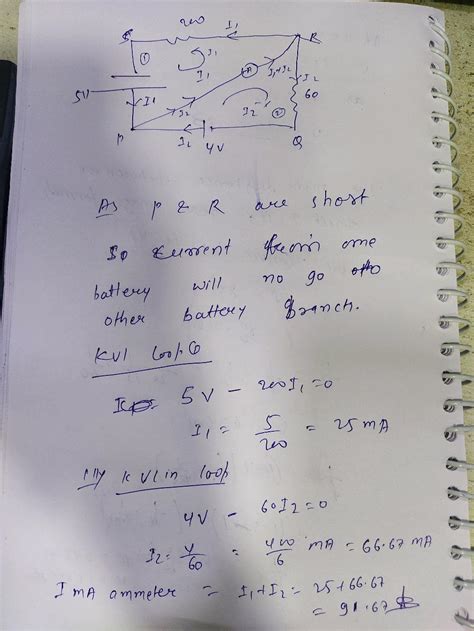 200 I1
R
1
I1
A
I1+I2
I2
60
5V
I1
I2
I2
2
P
I2
4V
Q
As P & R are short
So current from one
battery will no go
other battery branch.
KVL loop
5V - 200I1 = 0
I1 = 5/200 = 25 mA
llly KVL in loop
4V - 60I2 = 0
I2 = 4/60 = 400/6 mA = 66.67 mA
I mA ammeter = I1+I2 = 25+66.67
= 91.67